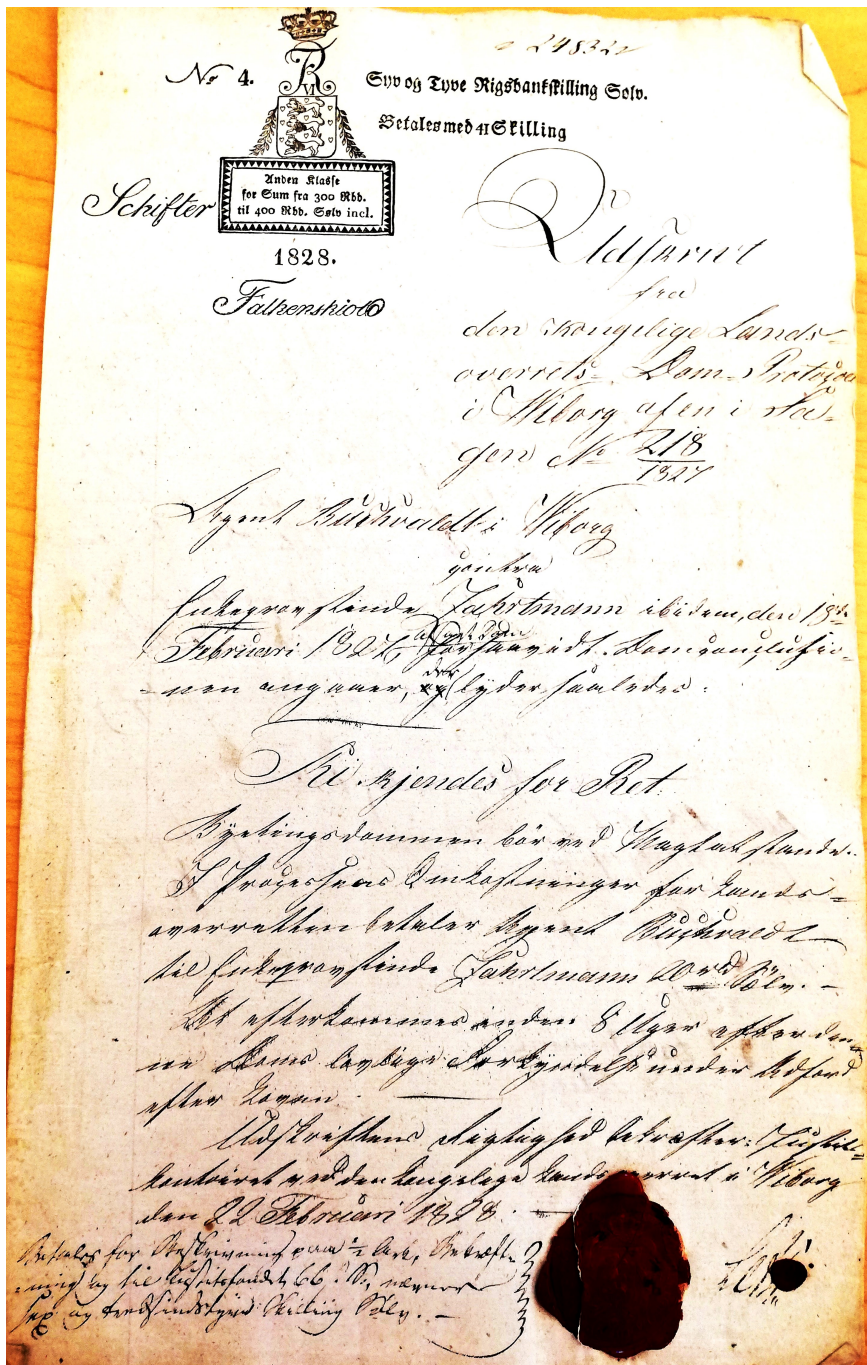 24832
No 4.
Syv og Tyve Rigsbankskilling Sølv.
Betales med 41 Skilling
Anden Klasse
for Sum fra 300 Rbd.
til 400 Rbd. Sølv incl.
Schifter
1828.
Falkenskiold
Udskrivt
fra
den Kongelige Lands-
overrets- Dom-Protocol
i Wiborg afen i Sa-
gen No 218/1827
Agent Buchwaldt i Wiborg
contra
Enkeprovstinde Fahrtmann ibidem, den 18de
Februari 182 afsagt Dom
forsaavidt Domconclusio-
nen angaaer, der lyder saaledes:
Thi kjendes for Ret:
Byetingsdommen bør ved Magt at stande.
I Processens Omkostninger for Lands-
overretten betaler Agent Buchwaldt
til Enkeprovstinde Fahrtmann 20 rd Sølv. -
At efterkommes inden 8 Uger efter den-
ne Doms lovlige Forkyndelse under Adfærd
efter Loven.
Udskriftens Rigtighed bekræfter: Justits-
kontoiret ved den kongelige Landsoverret i Wiborg
den 22 Februari 1828.
Betales for Beskrivning paa 1/2 Ark, Bekræft-
ning og til Justitsfondet 66 S, nævner
sex og tredsindstyve Skilling Sølv. -